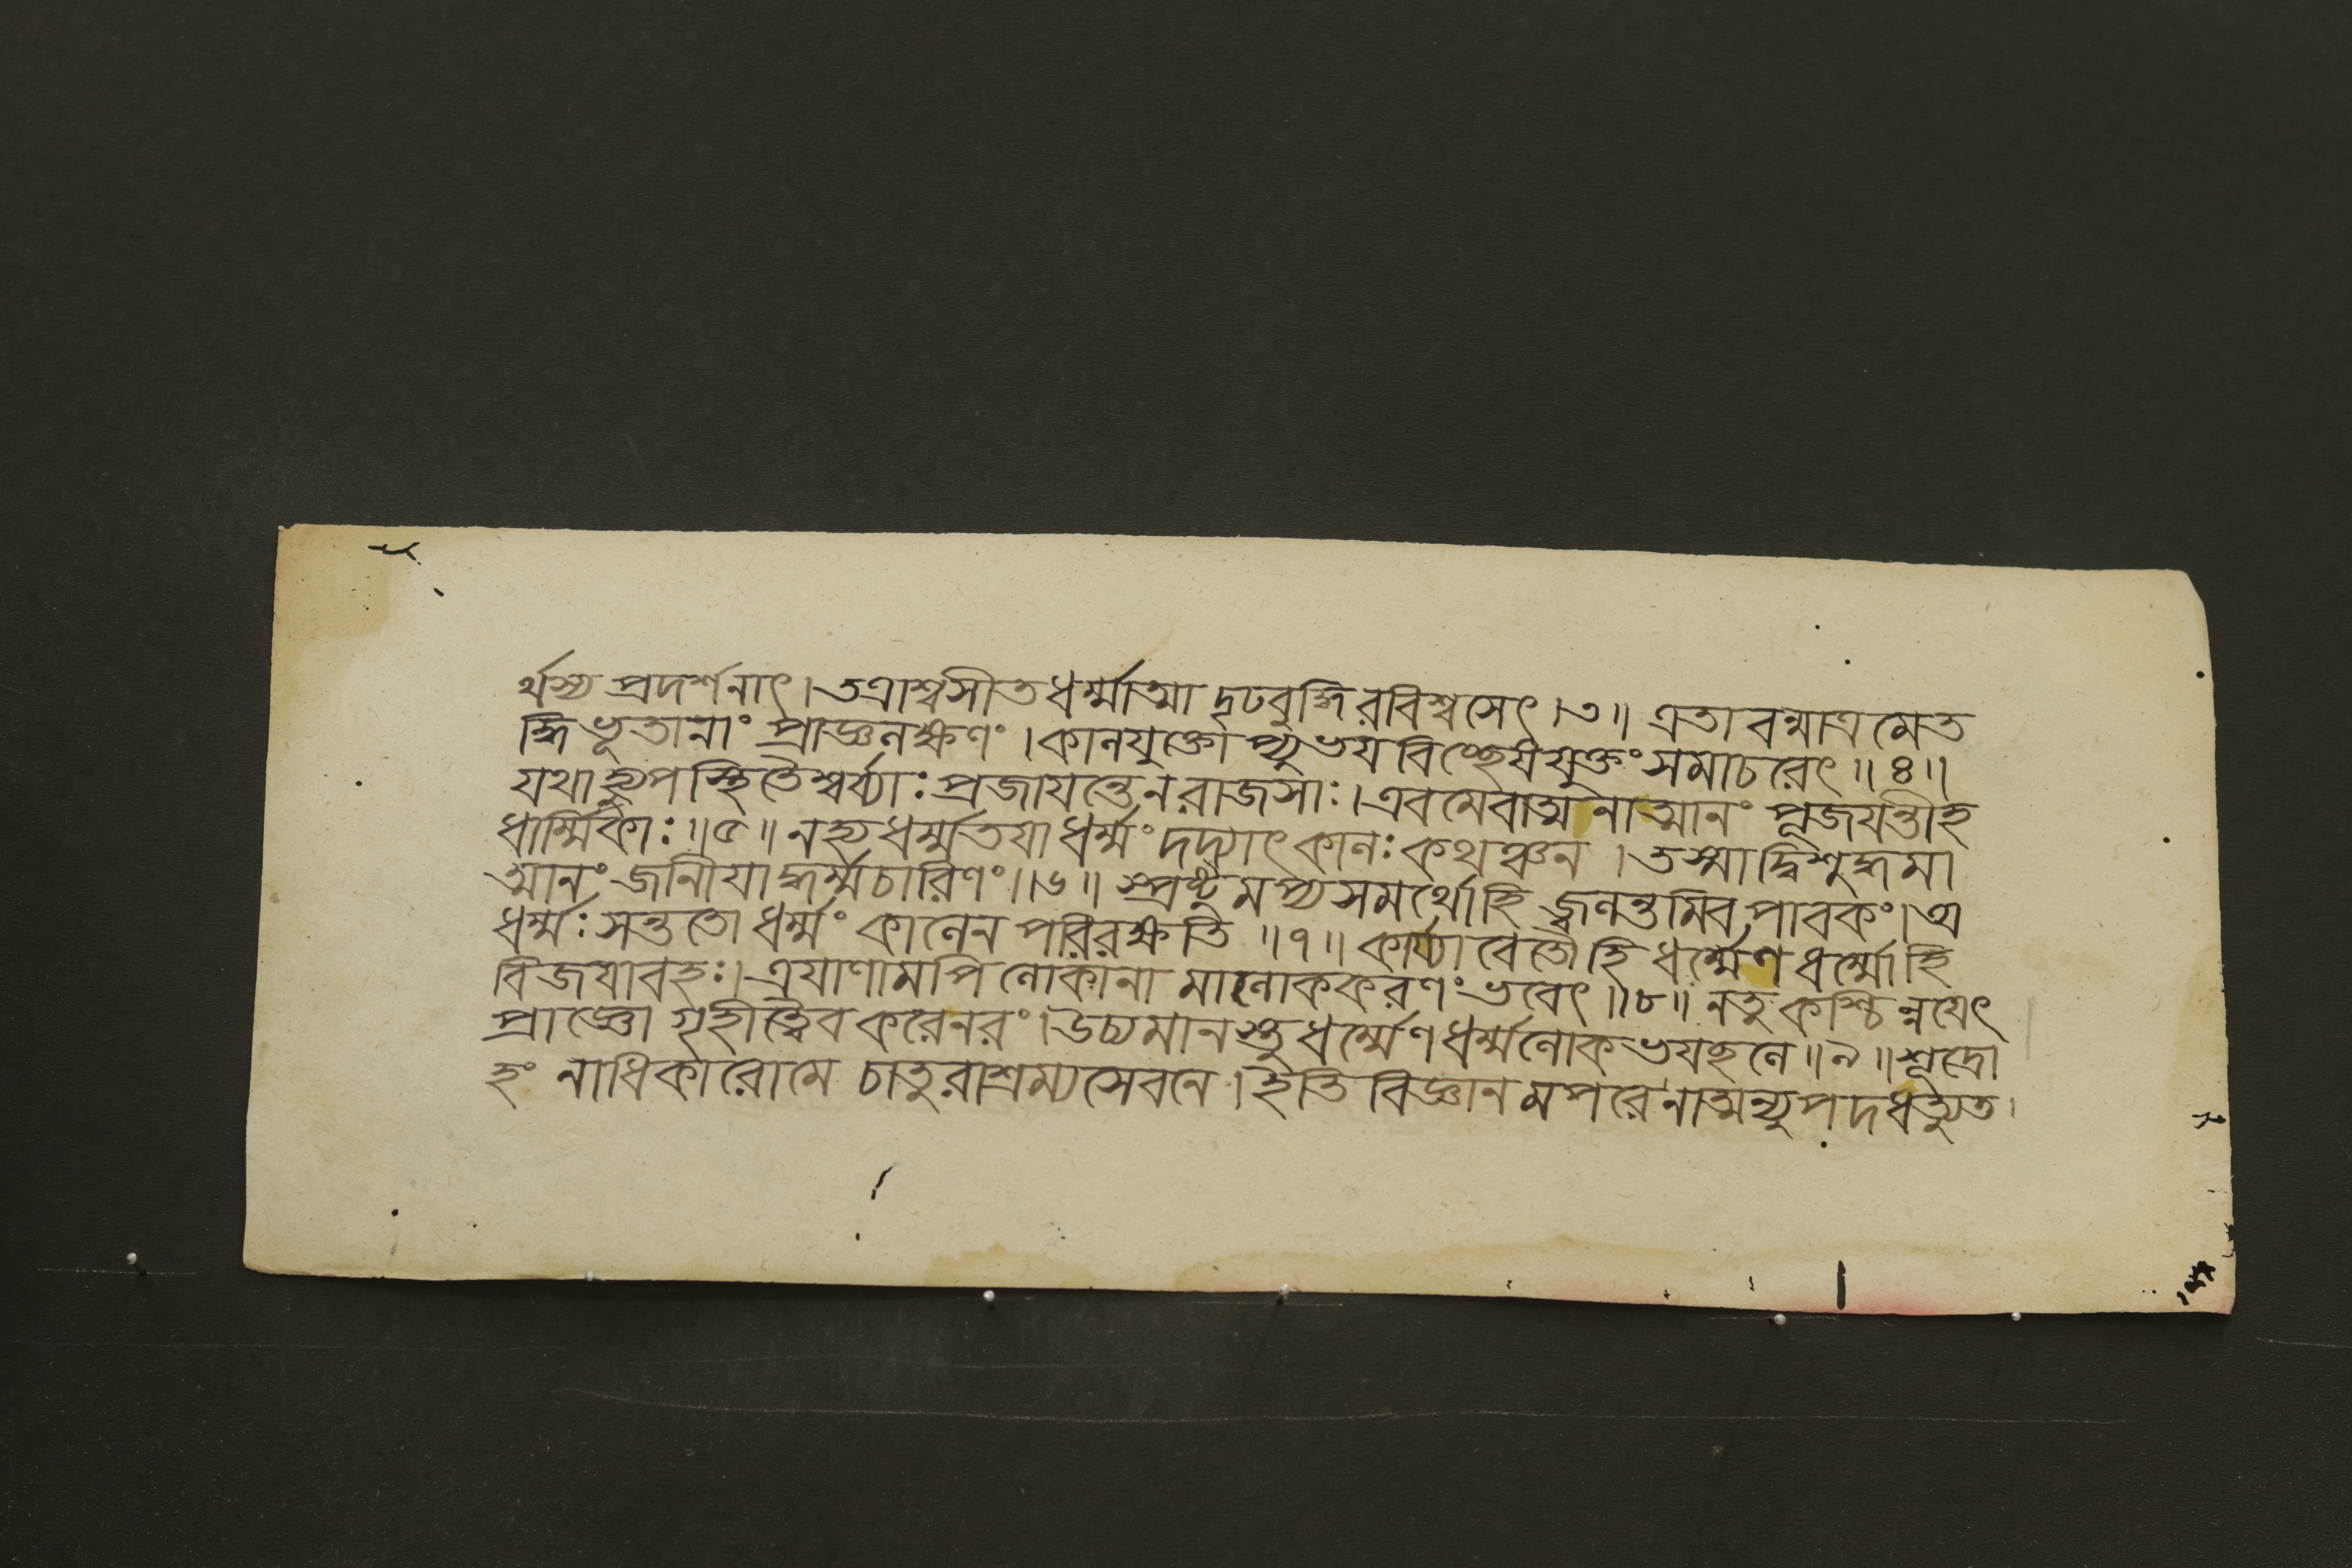 র্থস্য প্রদর্শনাৎ।তত্রাশ্বসীতধর্ম্মাত্মা দৃঢবুদ্ধিরবিশ্বসেৎ।৩॥ এতাবন্মাত্রমেত
দ্ধিভূতানাং প্রাজ্ঞলক্ষণং।কালযুক্তোপ্যুভযবিচ্ছেষযুক্তং সমাচরেৎ॥৪॥
যথাহ্যুপস্থিতৈশ্বর্য্যাঃপ্রজাযন্তেনরাজসাঃ।এবমেবাত্মনাত্মানং পূজযন্তীহ
ধার্ম্মিকাঃ॥৫॥নহ্যধর্ম্মতযাধর্ম্মং দদ্যাৎকালঃকথঞ্চন।তস্মাদ্বিশুদ্ধমা
ত্মানং জানীযাদ্ধর্ম্মচারিণং॥৬॥স্প্রষ্টুমপ্যসমর্থোহি জ্বলন্তমিবপাবকং।অ
ধর্ম্মঃসন্ততোধর্ম্মং কালেন পরিরক্ষতি॥৭॥কার্য্যাবেতৌহি ধর্ম্মেণধর্ম্মোহি
বিজযাবহঃ।ত্রযাণামপিলোকানা মালোককরণং ভবেৎ॥৮॥নতুকশ্চিন্নযেৎ
প্রাজ্ঞো গৃহীত্বৈবকরেনরং।উচ্যমানস্তুধর্ম্মেণধর্ম্মলোকভযছলে॥৯॥শূদ্রো
হং নাধিকারোমে চাতুরাশ্রম্যসেবনে।ইতি বিজ্ঞানমপরেনাত্মন্যুপদধত্যুত।